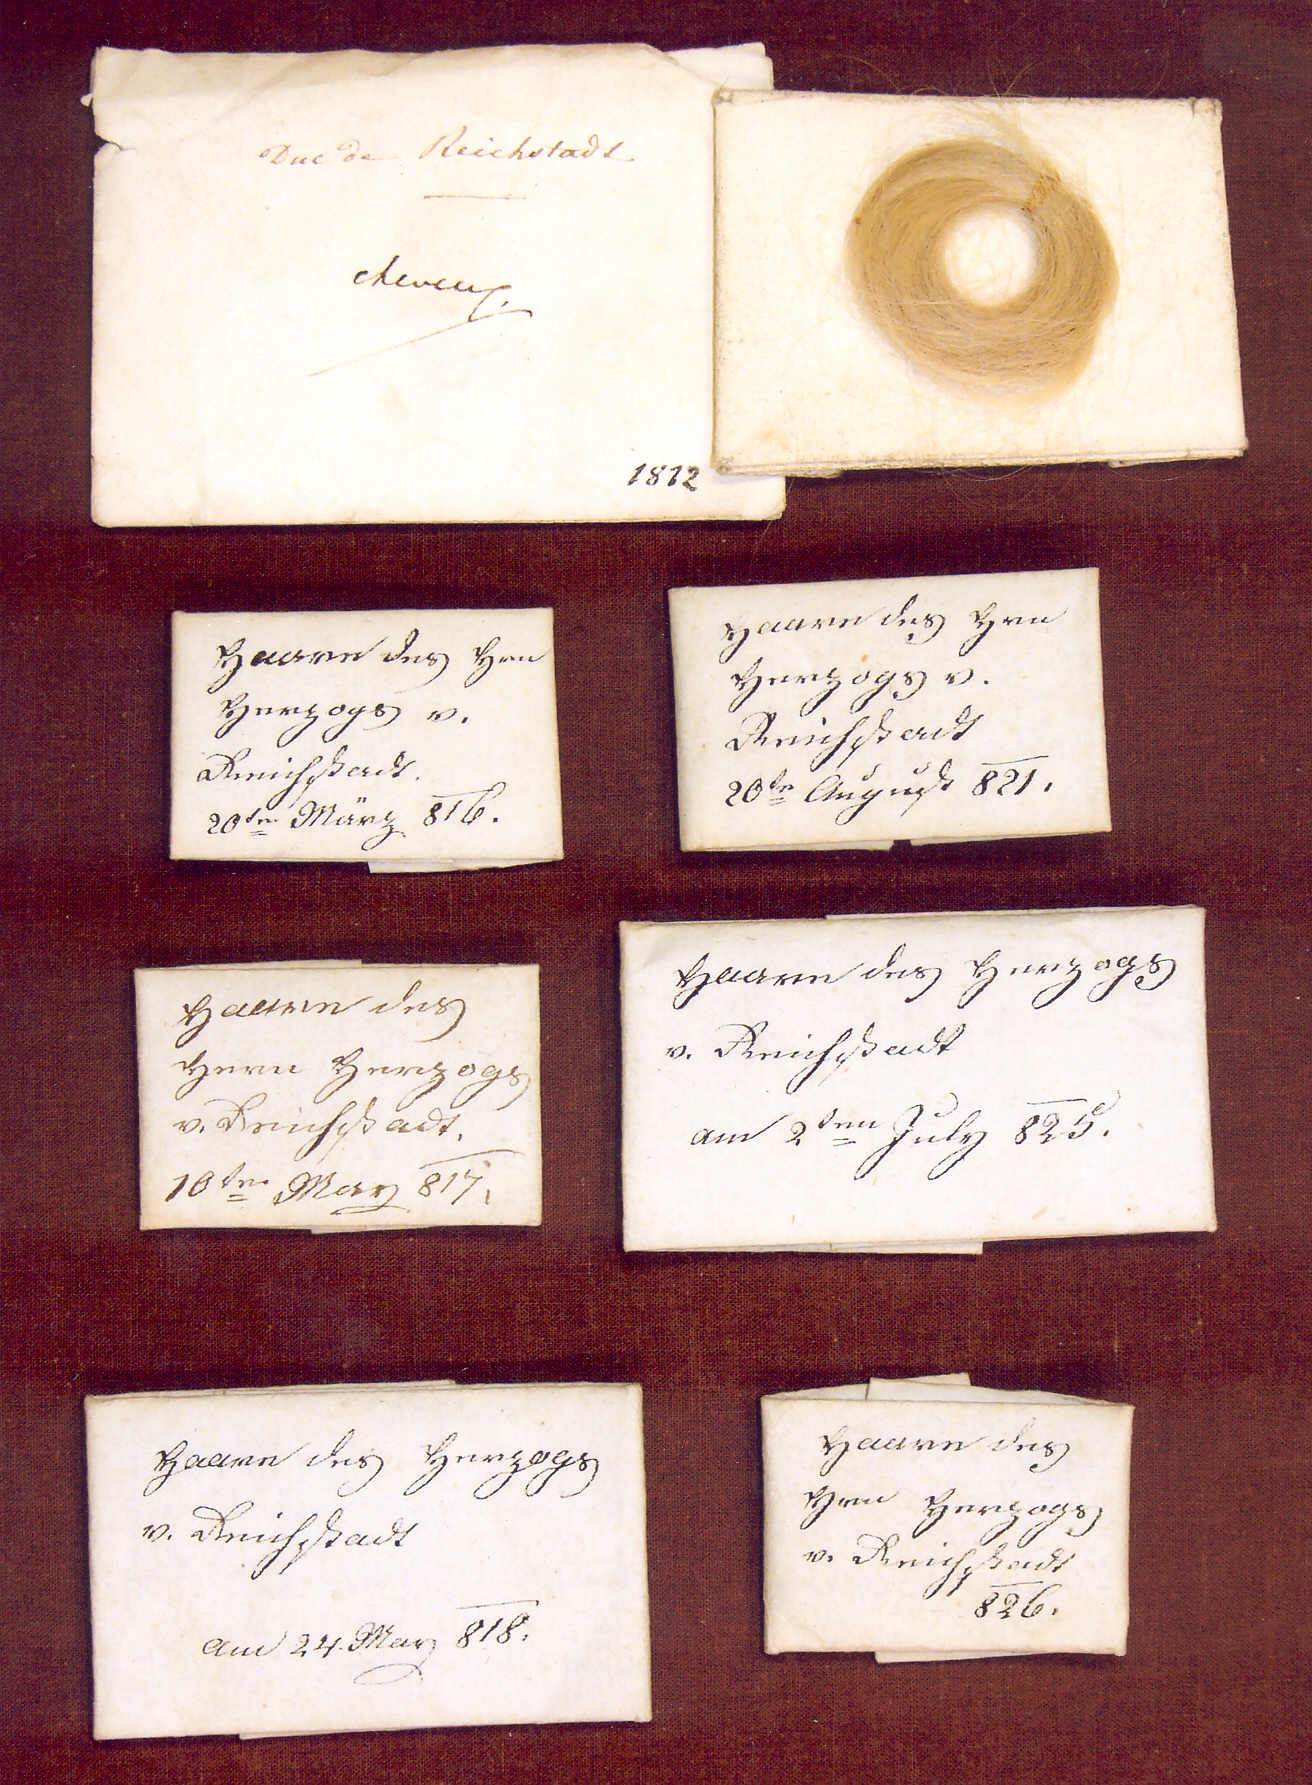 Duc de Reichstadt
cheveux.
1812
Haare des Hrn
Herzogs v.
Reichstadt.
20ten März 816.
Haare des Hrn
Herzogs v.
Reichstadt
20te August 821.
Haare des
Herrn Herzogs
v. Reichstadt.
10ten May 817.
Haare des Herzogs
v. Reichstadt
am 2ten July 825.
Haare des Herzogs
v. Reichstadt
am 24. May 818.
Haare des
Hrn Herzogs
v. Reichstadt
826.